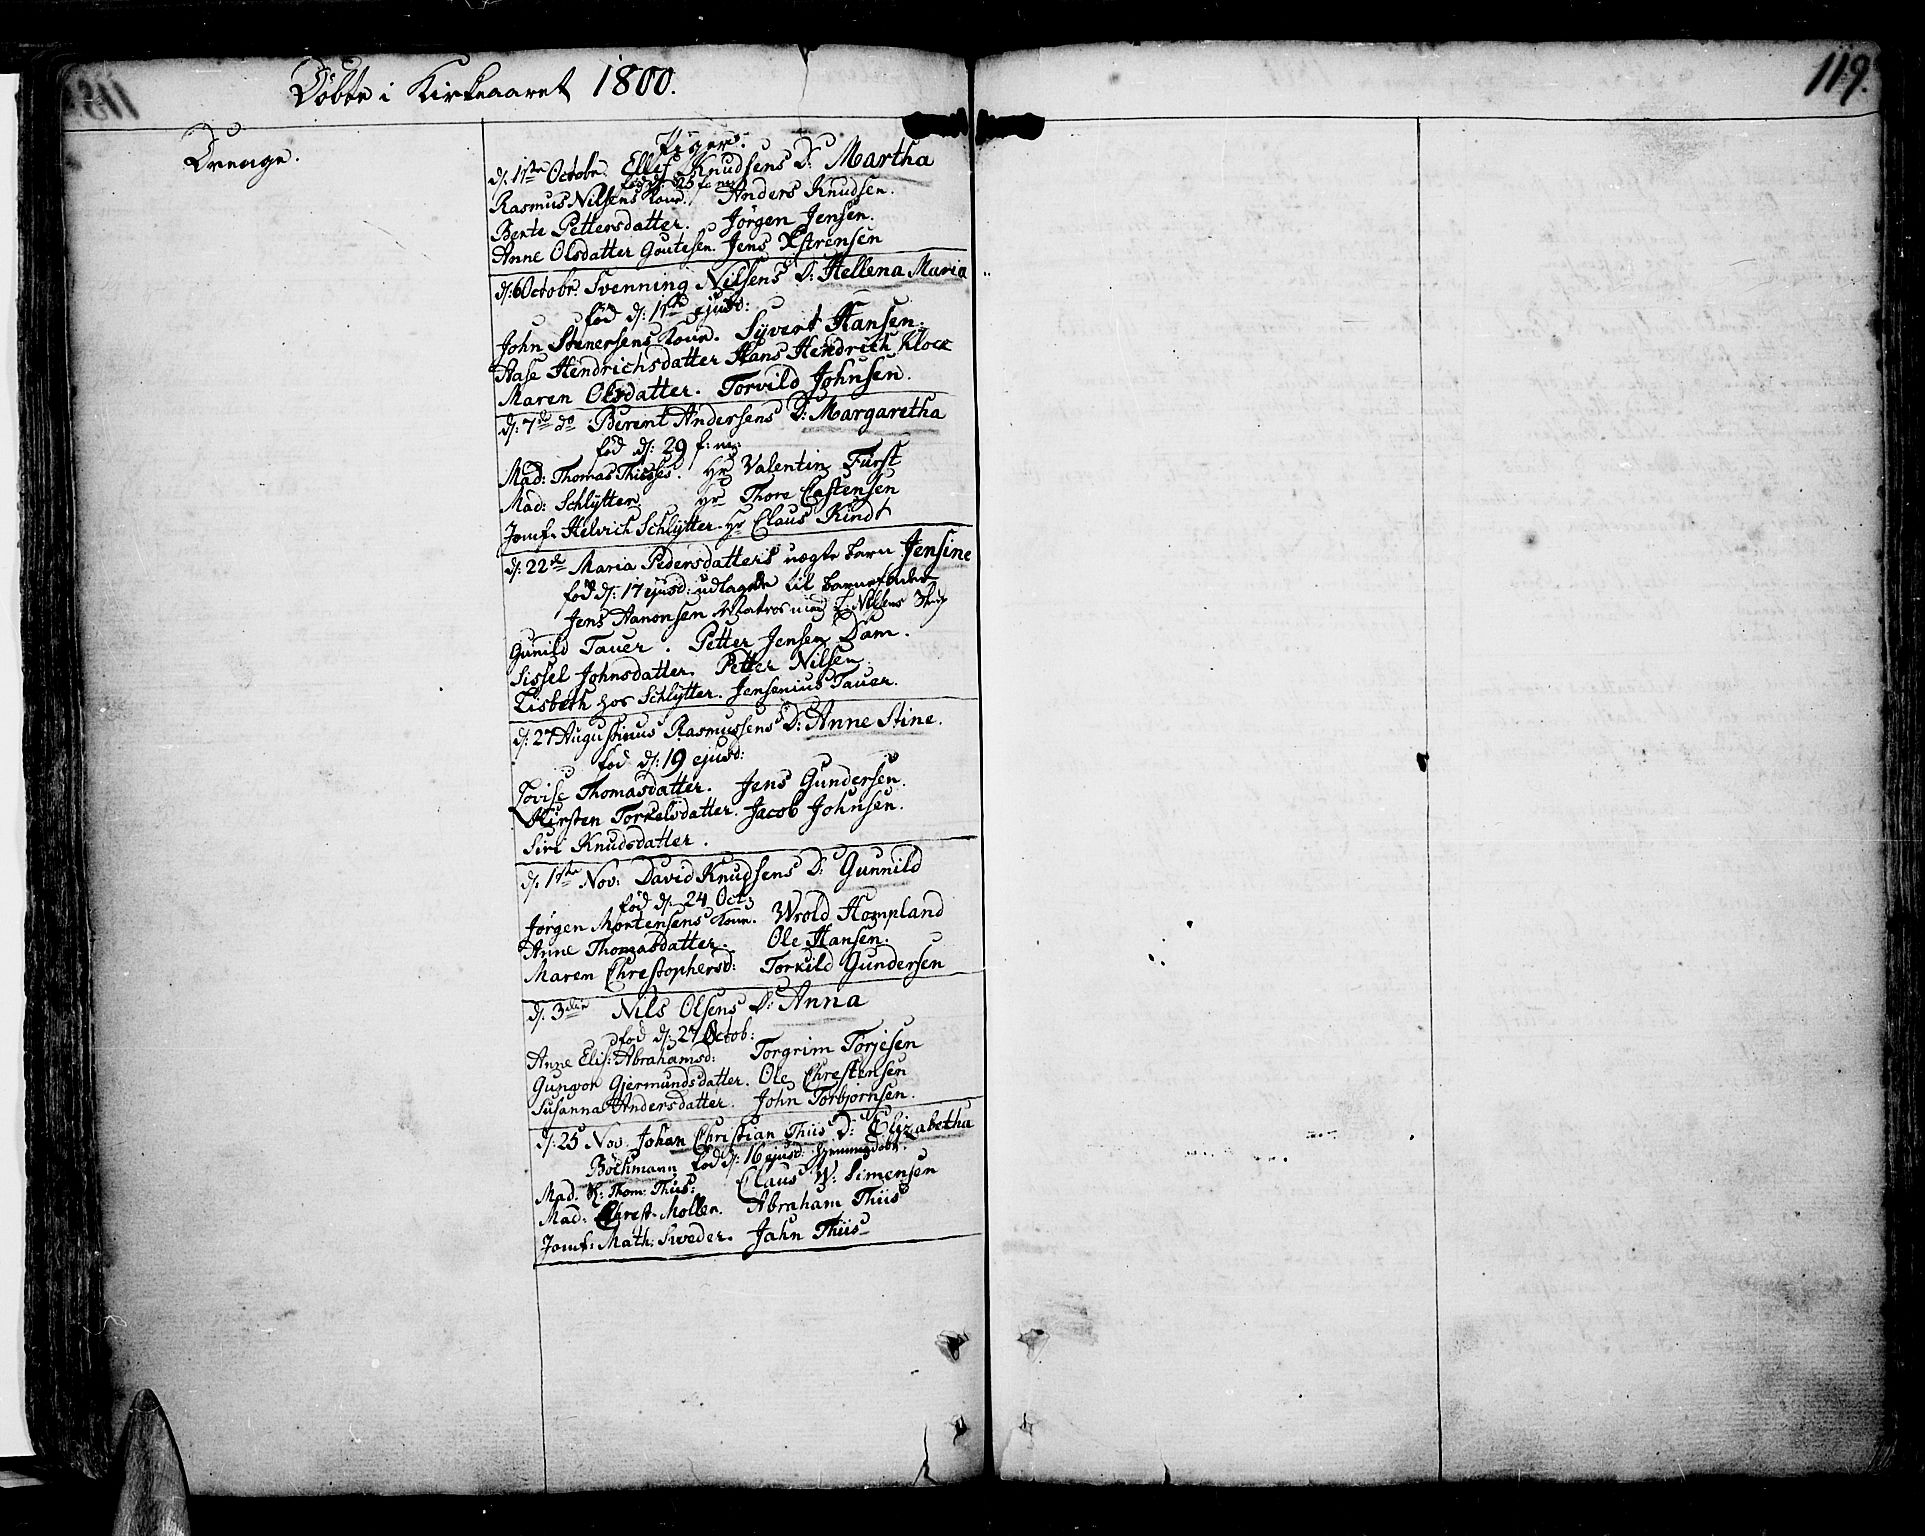 Döbte i Kirkeaaret 1800.
119.
Drenge.
Piger.
d: 1ste Octobr. Ellef Knudsens D: Martha
fød d: 25 f: m:
Rasmus Nilsens Kone. Anders Knudsen.
Bente Pettersdatter. Jörgen Jensen.
Anne Olsdatter Goutesen. Jens
d: 6 Octobr. Svenning Nilsens D: Hellena Maria
fød d: 1ste ejusd:
John Stenersens Kone. Sÿvert Hansen.
Aase Hendrichsdatter Hans Hendrich Klock
Maren Olsdatter. Torvild Johnsen.
d: 7de do Berent Andersens D: Margaretha
fød d: 29 f: m:
Mad: Thomas Thisses. Hr Valentin Fürst
Mad: Schlÿtter Hr Thore Castensen
Jomf. Helvich Schlÿtter. Hr Claus Kindt
d: 22de Maria Pedersdatters uægte barn Jensine
fød d: 17 ejusd: udlagde til barnefader
Jens Aanonsen Matros med Nilsens
Gunild Tauer. Petter Jensen Dam.
Sissel Johnsdatter. Petter Nilsen.
Lisbeth hos Schlÿtter. Jensenius Tauer.
d: 27 Augustinus Rasmussens D: Anne Stine.
fød d: 19 ejusd:
Lovise Thomasdatter. Jens Gundersen.
Kirsten Torkelsdatter. Jacob Johnsen.
Siri Knudsdatter.
d: 1ste Nov: David Knudsens D: Gunnild
fød d: 24 Oct:
Jørgen Mortensens Kone. Wrold Hompland
Anne Thomasdatter. Ole Hansen.
Maren Christophersd: Torkild Gundersen
d. 3die Nils Olsens D: Anna
fød d: 27 Octob:
Anne Elis: Abrahamsd: Torgrim Torjesen
Gunvor Gjermundsdatter. Ole Christensen
Susanna Andersdatter. John Torbjørnsen.
d: 25 Nov. Johan Christian Thiis D: Elizabetha
Böckmann fød d: 16 ejusd: hjemmedøbt.
Mad. Thom: Thiis: Claus W: Simensen
Mad: Christ. Mollen. Abraham Thiis
Jomf: Math: Sweder. Jahn Thiis